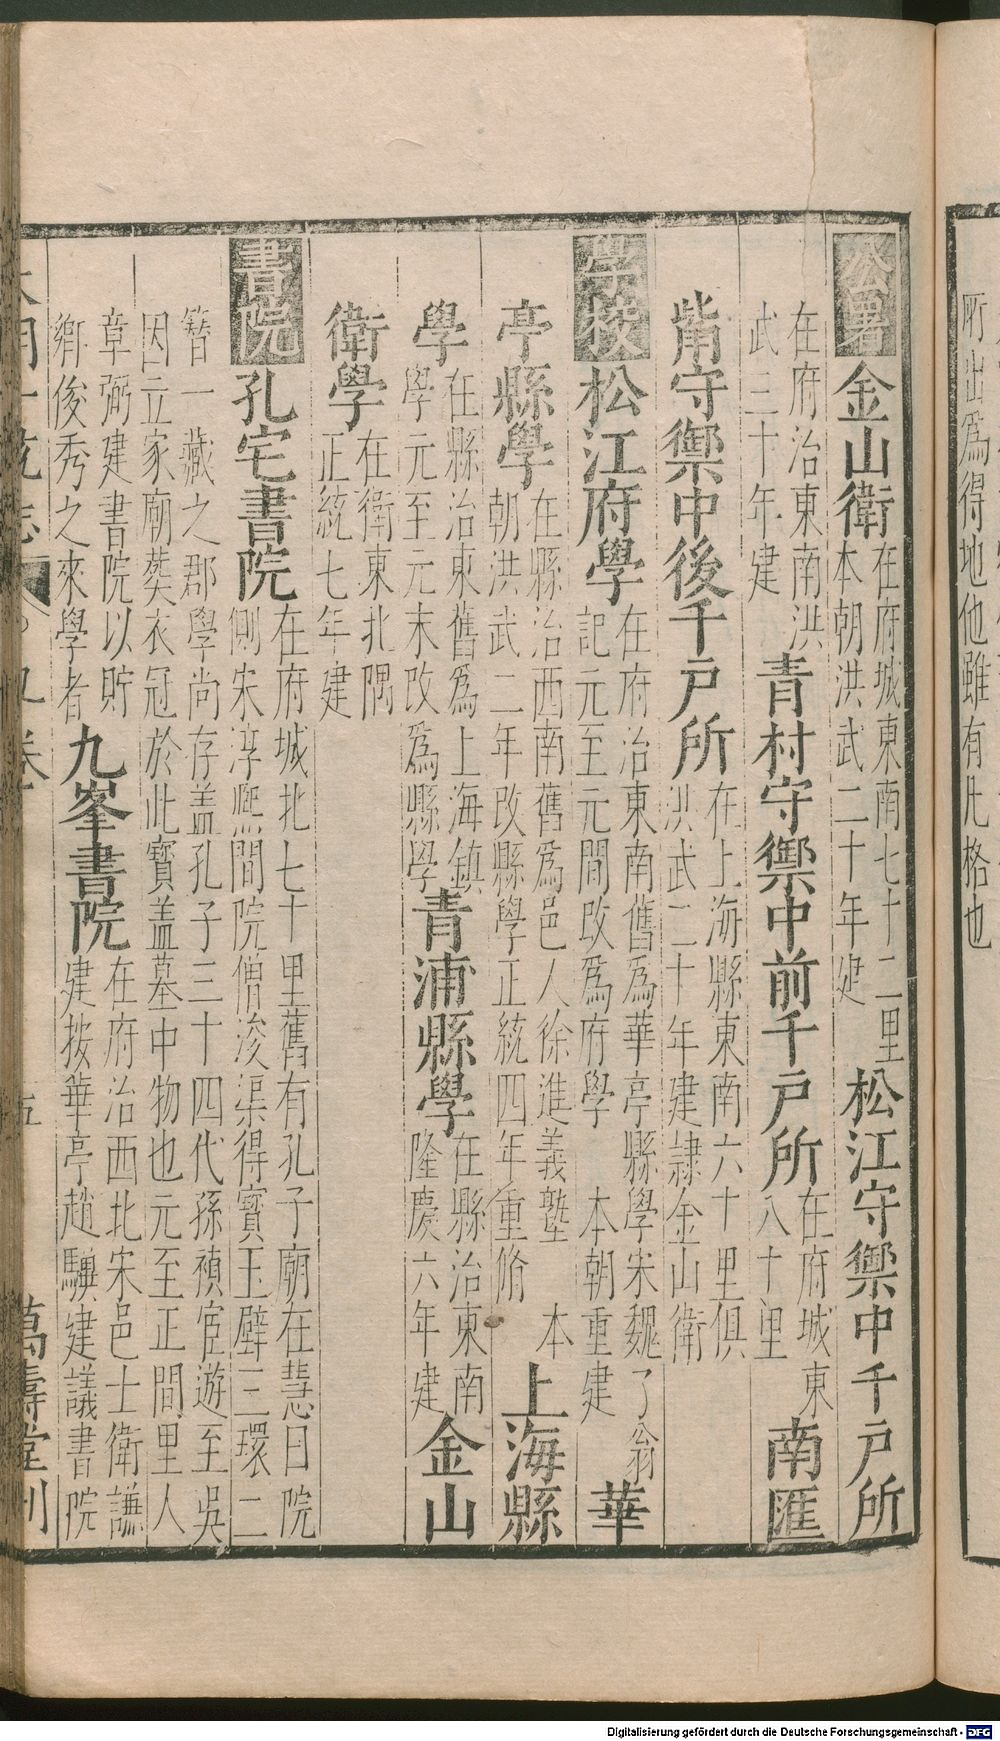 所出爲得地他雖有片格也
公署 金山衛 在府城東南七十二里
本朝洪武二十年建 松江守禦中千戶所
在府治東南洪
武三十年建 青村守禦中前千戶所 在府城東
八十里 南匯
觜守禦中後千戶所 在上海縣東南六十里俱
洪武二十年建隷金山衛
學校 松江府學 在府治東南舊爲華亭縣學宋魏了翁
記元至元間改爲府學 本朝重建 華
亭縣學 在縣治西南舊爲邑人徐進義塾 本
朝洪武二年改縣學正統四年重脩 上海縣
學 在縣治東舊爲上海鎮
學元至元末改爲縣學 青浦縣學 在縣治東南
隆慶六年建 金山
衛學 在衛東北隅
正統七年建
書院 孔宅書院 在府城北七十里舊有孔子廟在慧日院
側宋淳熙間院僧浚渠得寶玉璧三環二
簪一藏之郡學尚存盖孔子三十四代孫禎宦遊至吳
因立家廟塟衣冠於此寶盖墓中物也元至正間里人
章弼建書院以貯
鄉俊秀之來學者 九峯書院 在府治西北宋邑士衛謙
建按華亭趙驥建議書院
五 萬壽堂刊
Digitalisierung gefördert durch die Deutsche Forschungsgemeinschaft - DFG